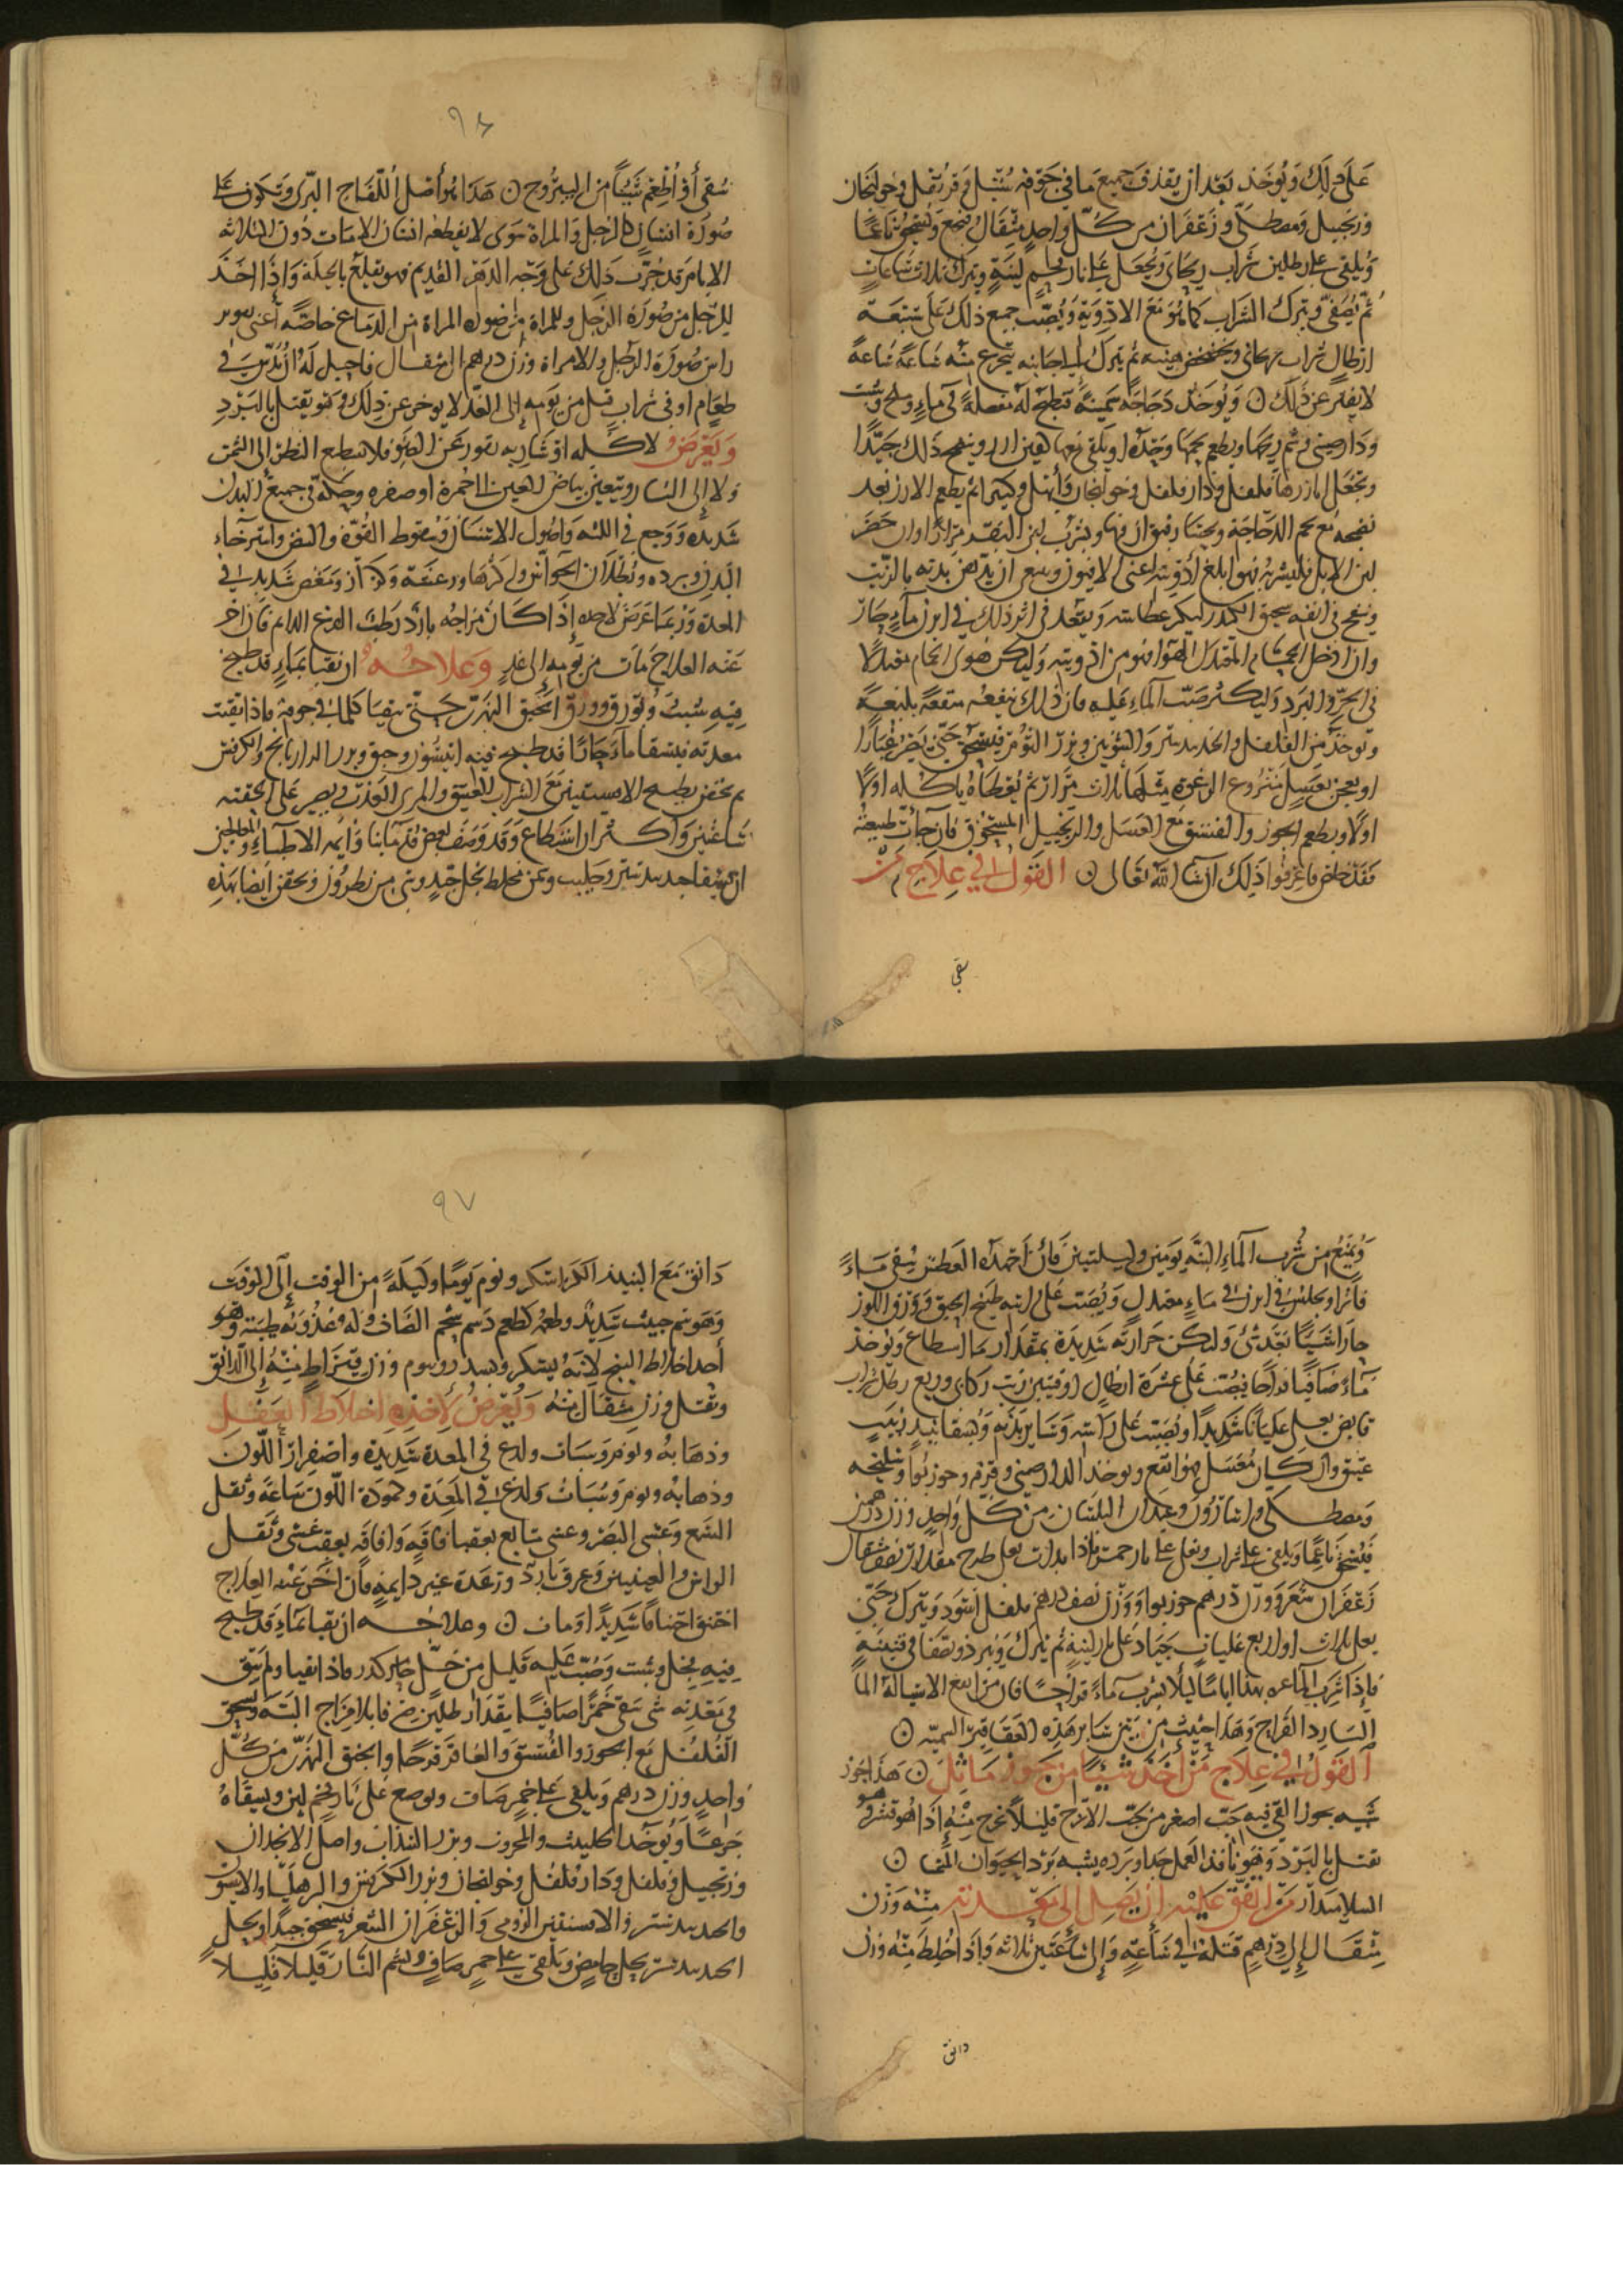 على ذلك ويؤخذ بعد ان يقذف جميع ما في جوفه سنبل وقرنفل وخولنجان
وزنجبيل ومصطكى وزعفران من كل واحد مثقال يجمع ويسحق ناعما
ويلقى على رطلين شراب ريحاني ويجعل على نار فحم لينة ويترك ثلاث ساعات
ثم يصفى ويترك الشراب كما هو مع الادوية ويصب جميع ذلك على سبعة
ارطال شراب ريحاني ويخضخض فيه ثم يترك الى جانبه يتجرع منه ساعة ساعة
لا يفتر عن ذلك ويؤخذ دجاجة سمينة فتطبخ له مفصلة في ماء وملح وشبت
ودارصيني ثم ويطعم لحمها وحده او يلقى معها ارز وينضج ذلك جيدا
وتجعل ابازيرها فلفل ودار فلفل وخولنجان ثم يطعم الارز بعد
نضجه مع لحم الدجاجة ويشرب لبن البقر مرارا وان حضر
لبن الابل فليشربه فهو ابلغ ادويته اعني الافيون وينبغي ان يدهن بدنه بالزيت
وينفخ في انفه سحيق الكندر ليكثر عطاسه ويقعد في اثر ذلك في ابزن ماء حار
وان ادخل الحمام المعتدل الهواء فهو من ادويته وليكن هوى الحمام معتدلا
في الحر والبرد وليكثر صب الماء عليه فان ذلك ينفعه منفعة بليغة
ويؤخذ من الفلفل والجندبيدستر والشونيز وبزر الثوم فيسحق حتى يصير غبارا
او يعجن بعسل منزوع الرغوة مثلها ثلاث مرار ثم يعطاه ياكله اولا
اولا ويطعم الجوز والفستق مع العسل والزنجبيل المسحوق فان جات طبيعته
فقد خلص فاعرفوا ذلك ان شا الله تعالى القول في علاج من
سقي
٩٦
سقي أو اطعم شيئا من اليبروح هذا هو أصل اللفاح البرى وتكون على
صورة انسان كالرجل والمراة سوى لا يقطعه انسان الا مات دون الثلاثه
الايام قد جرب ذلك على وجه الدهر القديم فهو يقلع بالحيلة واذا اخذ
للرجل من صورة الرجل وللمراة من صوره المراة من الدماغ خاصة أعني
راس صورة الرجل والامراة وزن درهم الى مثقال فاحيل له ان يدس في
طعام او في شراب قتل من يومه إلى الغد لا يوخر عن ذلك وهو يقتل بالبرد
ويعرض لاكله او شاربه عن الضو فلا يستطيع النظر إلى الشمس
ولا إلى النار وتغير بياض العين الى حمرة او صفره وحكة في جميع البدن
شديدة ووجع في اللثه واصول الاسنان وسقوط القوة والنبض واسترخاء
البدن وبرده وبطلان الحواس ورعشة وكزاز ومغص شديد في
المعدة وربما عرض لاحده إذا كان مزاجه بارد رطب الدائم فان اخر
عنه العلاج مات من يومه إلى غد وعلاجه ان يقيا بماء قد طبخ
فيه شبت وبورق وورق الحبق النهري حتى يتقيا كلما في جوفه فاذا نقيت
معدته فيسقا ماء حارا قد طبخ فيه انيسون وحبق وبزر الرازيانج والكرفس
ثم يحقن بطبيخ الافسنتين مع الشراب العتيق والمرى العذب ويصير على الحقنه
ساعتين واكثر ان استطاع وقد وصف بعض قدمائنا وايمة الاطباء والمعالجين
ان يسقا جندبيدستر وحلتيت وتمر مخلط بخل جيد وشي من نطرون ويحقن ايضا بهذه
ويمنع من شرب الماء البتة يومين وليلتين فان اجهده العطش يسقى ماء
فاترا ويجلس في ابزن في ماء معتدل ويصب على راسه طبيخ الحبق وورق اللوز
حارا شيئا بعد شئ ولتكن حرارته شديدة بمقدار ما استطاع ويؤخذ
ماء صافيا فيصب على عشرة ارطال اوقيتين زيت ركابي وربع رطل شراب
قابض يغلى غليانا شديدا ويصب على راسه وسائر بدنه ويسقا نبيذ زبيب
عتيق وان كان معسل فهو انفع ويوخذ الدارصيني وقرفه وجوزبوا وسليخه
ومصطكى واسارون وعيدان البلسان من كل واحد وزن درهمين
فيسحق ناعما ويلقى على شراب ويغلى على نار جمر فاذا بدات تغلى طرح مقدار نصف مثقال
زعفران شعر ووزن درهم جوزبوا ووزن نصف درهم فلفل اسود ويترك حتى
يغلى ثلاث او اربع غليات جياد على نار لينة ثم يترك ويبرد ويصفا في قنينه
فإذا شرب الماء عد بهذا اياما ليلا يشرب ماء قراحا فان من انفع الاشيا له الما
البارد القراح وهذا اخبث من بين سائر هذه العقاقير السميه
القول في علاج من أخذ شيئا من جوز ماثل هذا جوز
شبيه بجوز القي فيه حب اصغر من حب الاترج قليلا نخرج منه إذا هو قشر وهو
يقتل بالبرد وهو نافذ العمل جدا وبرده يشبه برد الحيوان
السلامندر من اتفق عليه ان يصل الى معدته منه وزن
مثقال إلى درهم قتله في ساعته وإلى ساعتين ثلاثه واذا خلط منه وزن
دانق
٩٧
دانق مع النبيذ اسكر ونوم يوما وليلة من الوقت إلى الوقت
وهو سم خبيث شديد وطعمه كطعم دسم شحم الضان وله عذوبه طيبته وهو
أحد اخلاط البنج لانه يسكر وينوم وزن قيراط منه إلى الدانق
ويقتل وزن مثقال منه ويعرض لاخذه اختلاط العقل
وذهابه ونوم وسبات ولدع في المعدة شديدة واصفرار اللون
وذهابه ونوم وسبات ولدع في المعدة وحمودة اللون ساعة وثقل
السمع وعشى البصر وغشى متتابع بعقبها افاقه وافاقه بعقب غشى وثقل
الراس والعينين وعرق بارد ورعدة غير دايمة فان اخر عنه العلاج
اختنق اختناقا شديدا او مات وعلاجه ان يقيا بماء قد طبخ
فيه فجل وشبت وصب عليه قليل من خل خمر كدر فاذا تقيا ولم يبق
في معدته شى سقي خمرا صافيا بمقدار رطلين صرفا بلا مزاج البتة ويسحق
الفلفل مع الجوز والفستق والعاقرقرحا والحبق النهري من كل
واحد وزن درهم ويلقى على خمر صاف ويوضع على نار فحم لين ويسقاه
جرعا ويؤخذ الحلتيت والمحروث وبزر السذاب واصل الانجدان
وزنجبيل وفلفل ودار فلفل وخولنجان وبزر الكرفس والانيسون
والجندبيدستر والافسنتين الرومي والزعفران الشعر فيسحق جيدا ويحل
الجندبيدستر بخل حامض ويلقى على خمر صاف ويشم النار قليلا قليلا